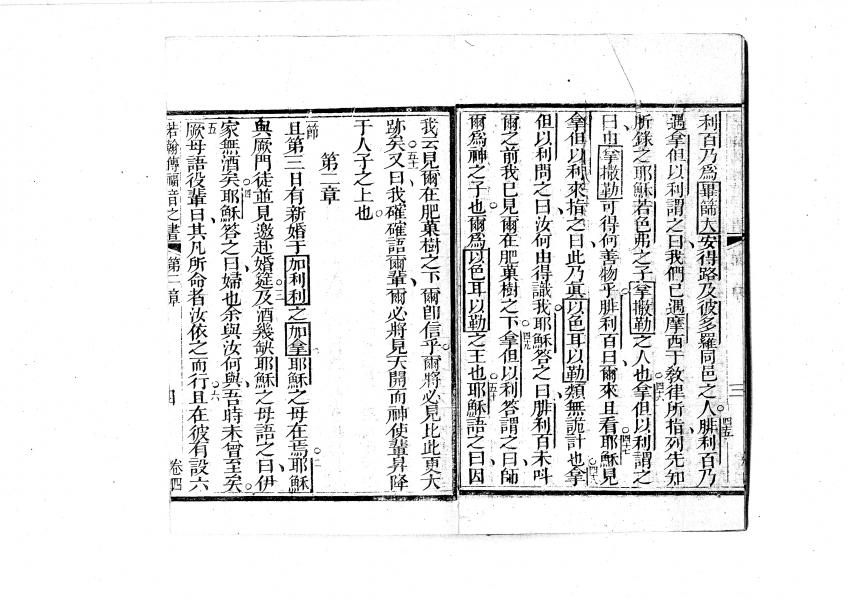 利百乃爲畢篩大安得路及彼多羅同邑之人腓利百乃
四五
遇拿但以利謂之曰我們已遇摩西于敎律所指列先知
所錄之耶穌若色弗之子拿撒勒之人也拿但以利謂之
四六
曰由拿撒勒可得何善物乎腓利百曰爾來且看耶穌見
四七
拿但以利來指之曰此乃眞以色耳以勒類無詭計也拿
四八
但以利問之曰汝何由得識我耶穌答之曰腓利百未呌
爾之前我已見爾在肥菓樹之下拿但以利答謂之曰師
四九
爾爲神之子也爾爲以色耳以勒之王也耶穌語之曰因
五十
三
我云見爾在肥菓樹之下爾卽信乎爾將必見比此更大
跡矣又曰我確確語爾輩爾必將見天開而神使輩昇降
五十一
于人子之上也
第二章
節
且第三日有新婚于加利利之加拿耶穌之母在焉耶穌
二
與厥門徒並見邀赴婚筵及酒幾缺耶穌之母語之曰伊
三
家無酒矣耶穌答之曰婦也余與汝何與吾時未曾至矣
四
五
厥母語役輩曰其凡所命者汝依之而行且在彼有設六
六
若翰傳福音之書
第二章
四
卷四